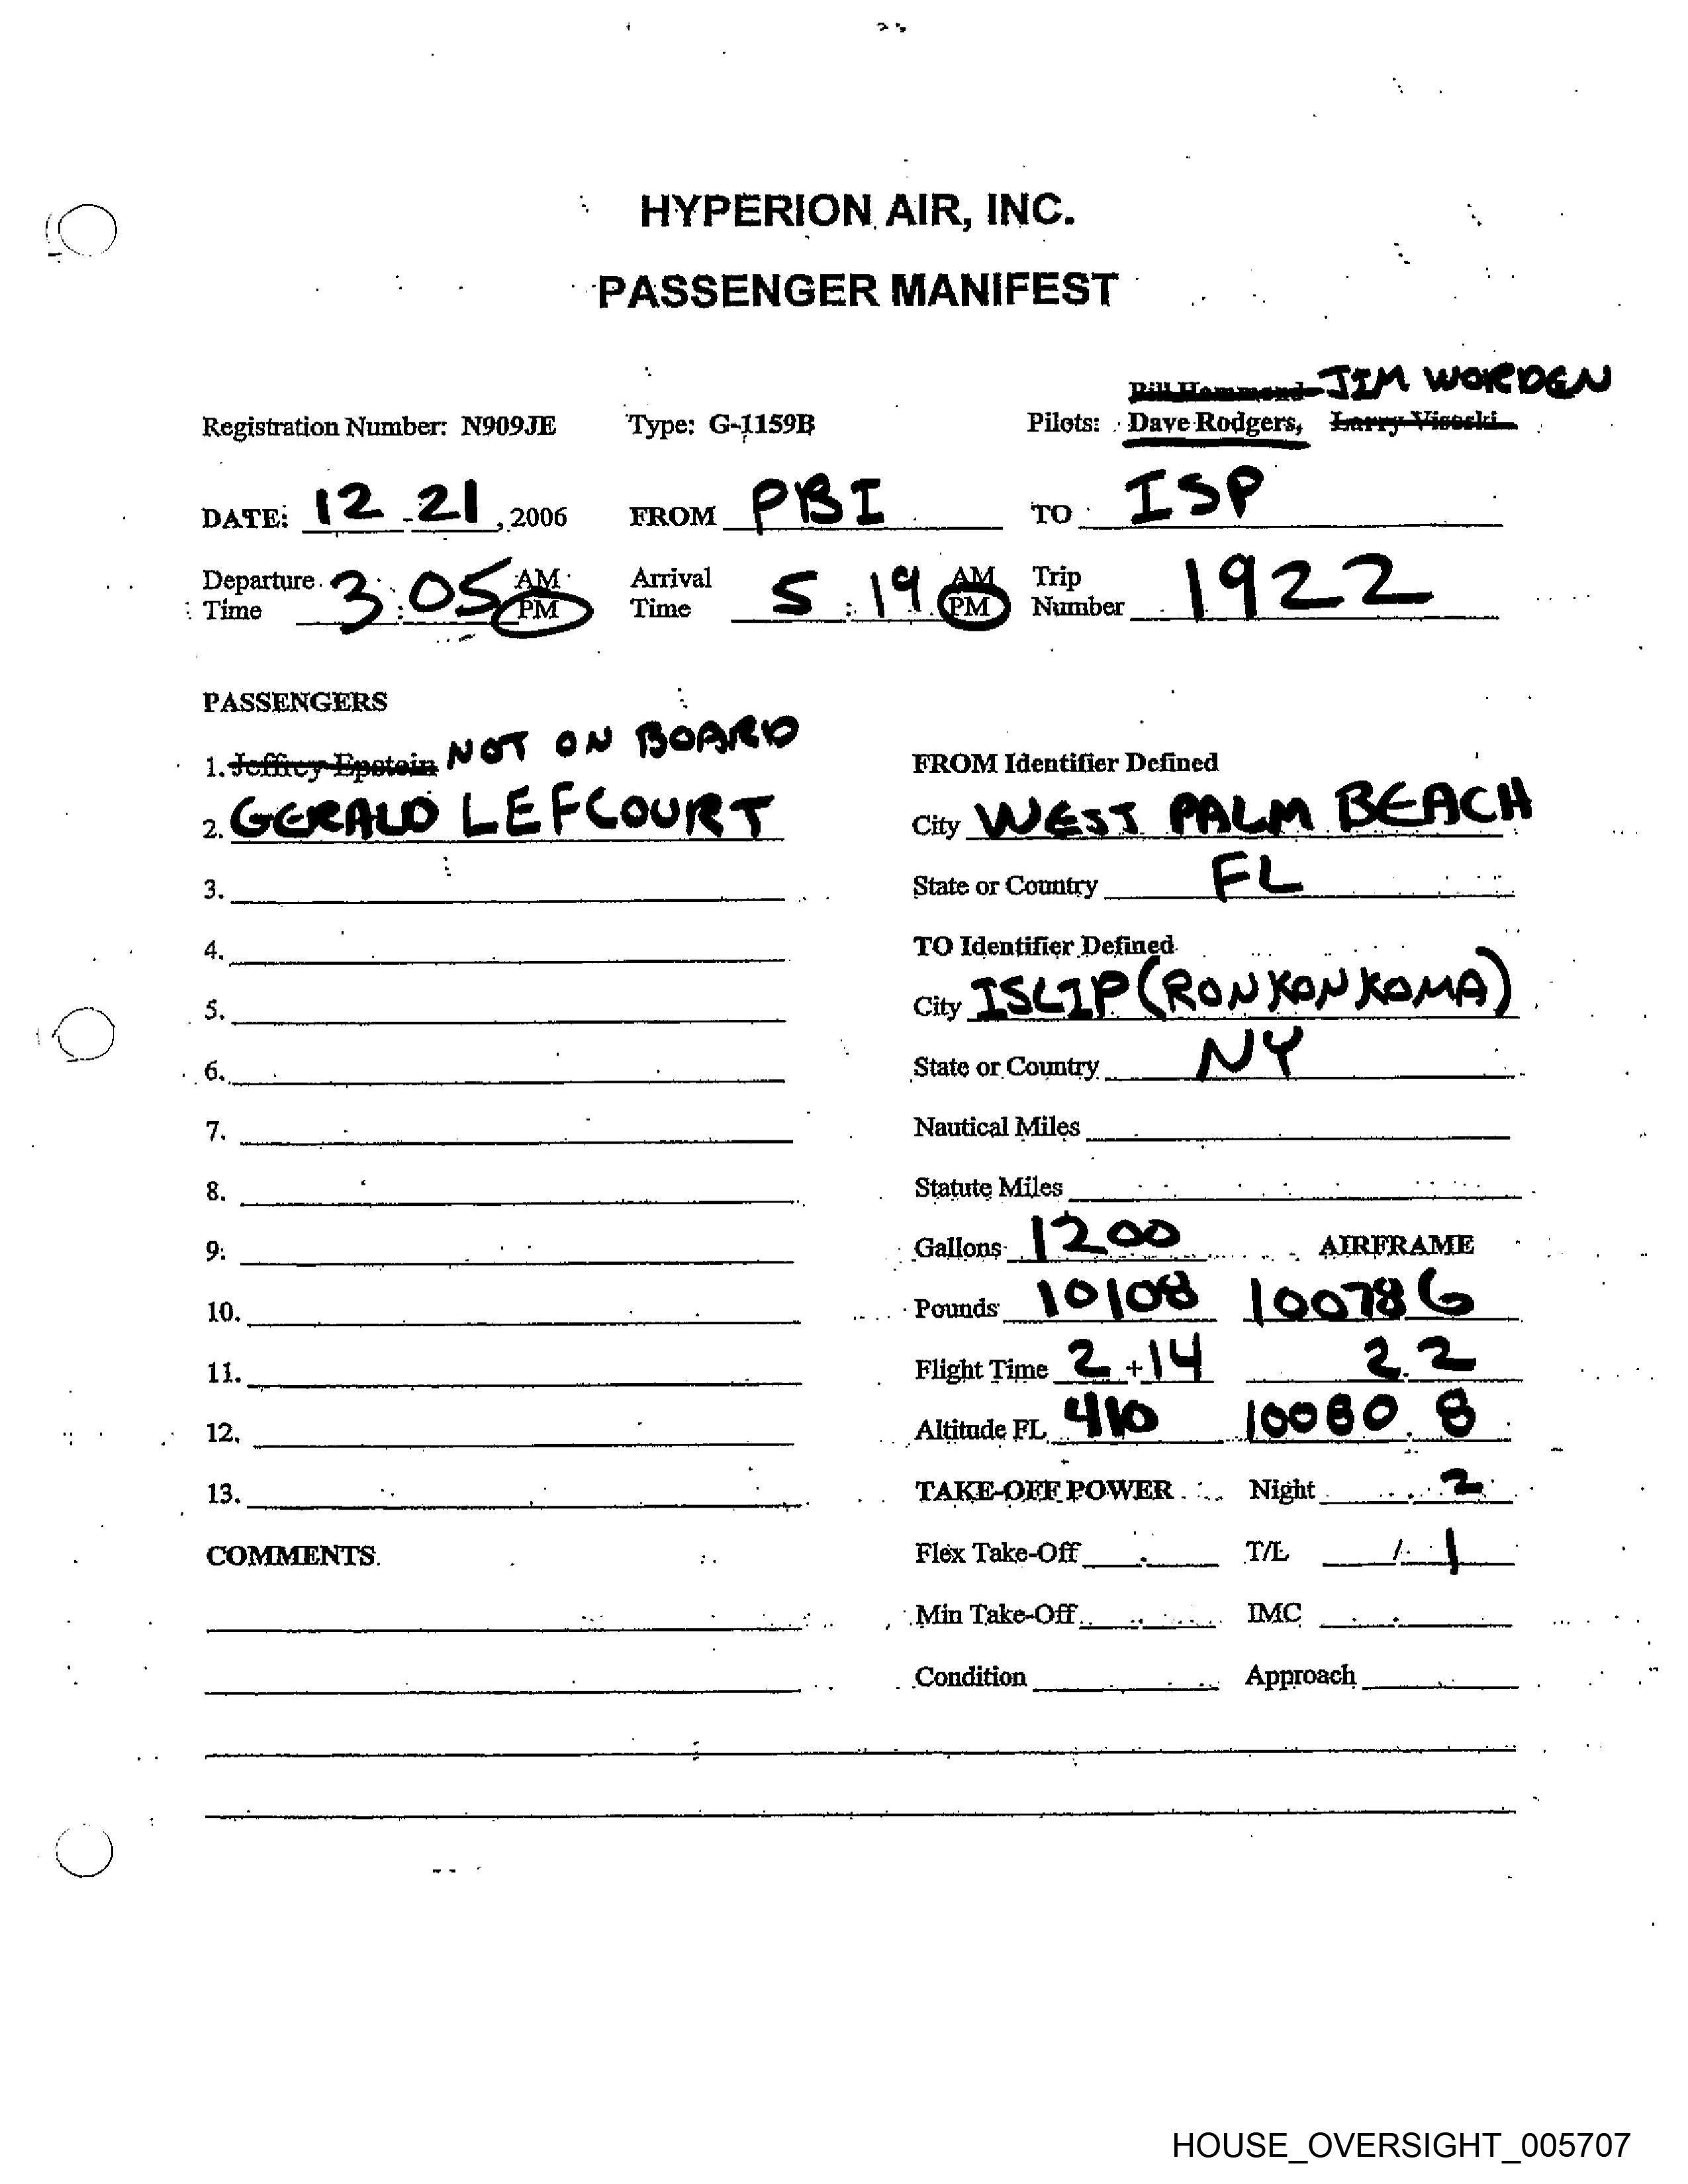 HYPERION AIR, INC.
PASSENGER MANIFEST
Bill Hammond JIM WORDEN
Registration Number: N909JE Type: G-1159B Pilots: Dave Rodgers, Larry Visoski
DATE: 12-21, 2006 FROM PBI TO ISP
Departure Time 3:05 AM PM Arrival Time 5:19 AM PM Trip Number 1922
PASSENGERS
1. Jeffrey Epstein NOT ON BOARD
FROM Identifier Defined
2. GERALD LEFCOURT
City WEST PALM BEACH
3.
State or Country FL
4.
TO Identifier Defined
5.
City ISLIP (RONKONKOMA)
6.
State or Country NY
7.
Nautical Miles
8.
Statute Miles
9.
Gallons 1200 AIRFRAME
10.
Pounds 10108 10078 6
11.
Flight Time 2+14 2.2
12.
Altitude FL 410 10080.8
13.
TAKE-OFF POWER Night .2
COMMENTS
Flex Take-Off T/L / 1
Min Take-Off IMC
Condition Approach
HOUSE_OVERSIGHT_005707